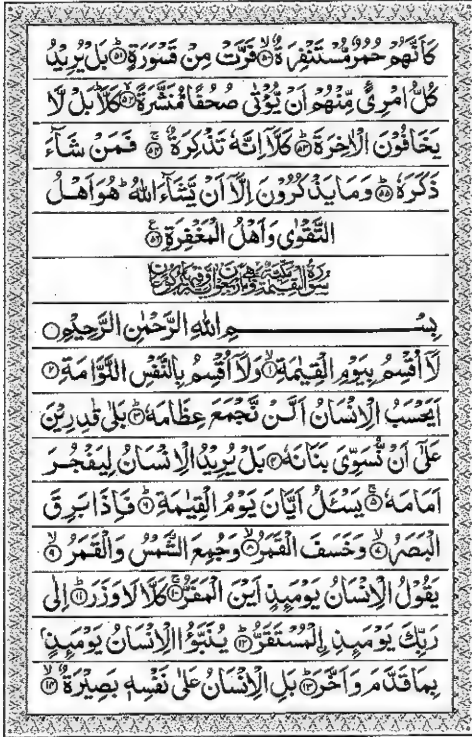 كَاَنَّهُمْ حُمُرٌ مُّسْتَنْفِرَةٌ ۙ﴿۵۰﴾ فَرَّتْ مِنْ قَسْوَرَةٍ ؕ﴿۵۱﴾ بَلْ يُرِيْدُ
كُلُّ امْرِئٍ مِّنْهُمْ اَنْ يُّؤْتٰى صُحُفًا مُّنَشَّرَةً ۙ﴿۵۲﴾ كَلَّا ؕ بَلْ لَّا
يَخَافُوْنَ الْاٰخِرَةَ ؕ﴿۵۳﴾ كَلَّاۤ اِنَّهٗ تَذْكِرَةٌ ۚ﴿۵۴﴾ فَمَنْ شَآءَ
ذَكَرَهٗ ؕ﴿۵۵﴾ وَمَا يَذْكُرُوْنَ اِلَّاۤ اَنْ يَّشَآءَ اللّٰهُ ؕ هُوَ اَهْلُ
التَّقْوٰى وَاَهْلُ الْمَغْفِرَةِ ﴿۵۶﴾ ع
سُوْرَةُ الْقِيٰمَةِ مَكِّيَّةٌ
بِسْمِ اللّٰهِ الرَّحْمٰنِ الرَّحِيْمِ ○
لَاۤ اُقْسِمُ بِيَوْمِ الْقِيٰمَةِ ۙ﴿۱﴾ وَلَاۤ اُقْسِمُ بِالنَّفْسِ اللَّوَّامَةِ ؕ﴿۲﴾
اَيَحْسَبُ الْاِنْسَانُ اَلَّنْ نَّجْمَعَ عِظَامَهٗ ؕ﴿۳﴾ بَلٰى قٰدِرِيْنَ
عَلٰۤى اَنْ نُّسَوِّىَ بَنَانَهٗ ﴿۴﴾ بَلْ يُرِيْدُ الْاِنْسَانُ لِيَفْجُرَ
اَمَامَهٗ ۚ﴿۵﴾ يَسْـَٔلُ اَيَّانَ يَوْمُ الْقِيٰمَةِ ؕ﴿۶﴾ فَاِذَا بَرِقَ
الْبَصَرُ ۙ﴿۷﴾ وَخَسَفَ الْقَمَرُ ۙ﴿۸﴾ وَجُمِعَ الشَّمْسُ وَالْقَمَرُ ۙ﴿۹﴾
يَقُوْلُ الْاِنْسَانُ يَوْمَئِذٍ اَيْنَ الْمَفَرُّ ۚ﴿۱۰﴾ كَلَّا لَا وَزَرَ ؕ﴿۱۱﴾ اِلٰى
رَبِّكَ يَوْمَئِذِ ۣالْمُسْتَقَرُّ ؕ﴿۱۲﴾ يُنَبَّؤُا الْاِنْسَانُ يَوْمَئِذٍۭ
بِمَا قَدَّمَ وَاَخَّرَ ؕ﴿۱۳﴾ بَلِ الْاِنْسَانُ عَلٰى نَفْسِهٖ بَصِيْرَةٌ ۙ﴿۱۴﴾